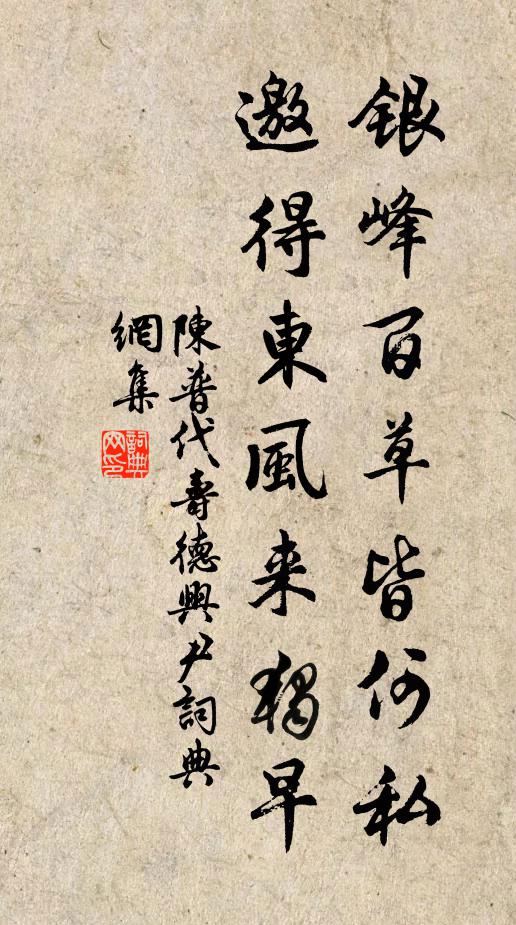 銀峰百草皆何私
邀得東風来獨早
陳普代壽德興尹詞典
網集
詞典
网印